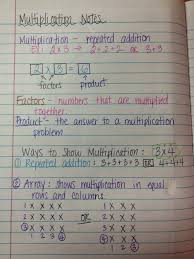 Multiplication Notes
Multiplication - repeated addition
Ex: 2 x 3 → 2+2+2 or 3+3
2 x 3 = 6
factors product
Factors - numbers that are multiplied
together.
Product - the answer to a multiplication
problem
Ways to Show Multiplication: 3x4
① Repeated addition: 3+3+3+3 OR 4+4+4
② Array: shows multiplication in equal
rows and columns.
1 X X X X 1 X X X
2 X X X X OR 2 X X X
③ X X X X 3 X X X
1 2 3 ④ ④ X X X
1 2 ③